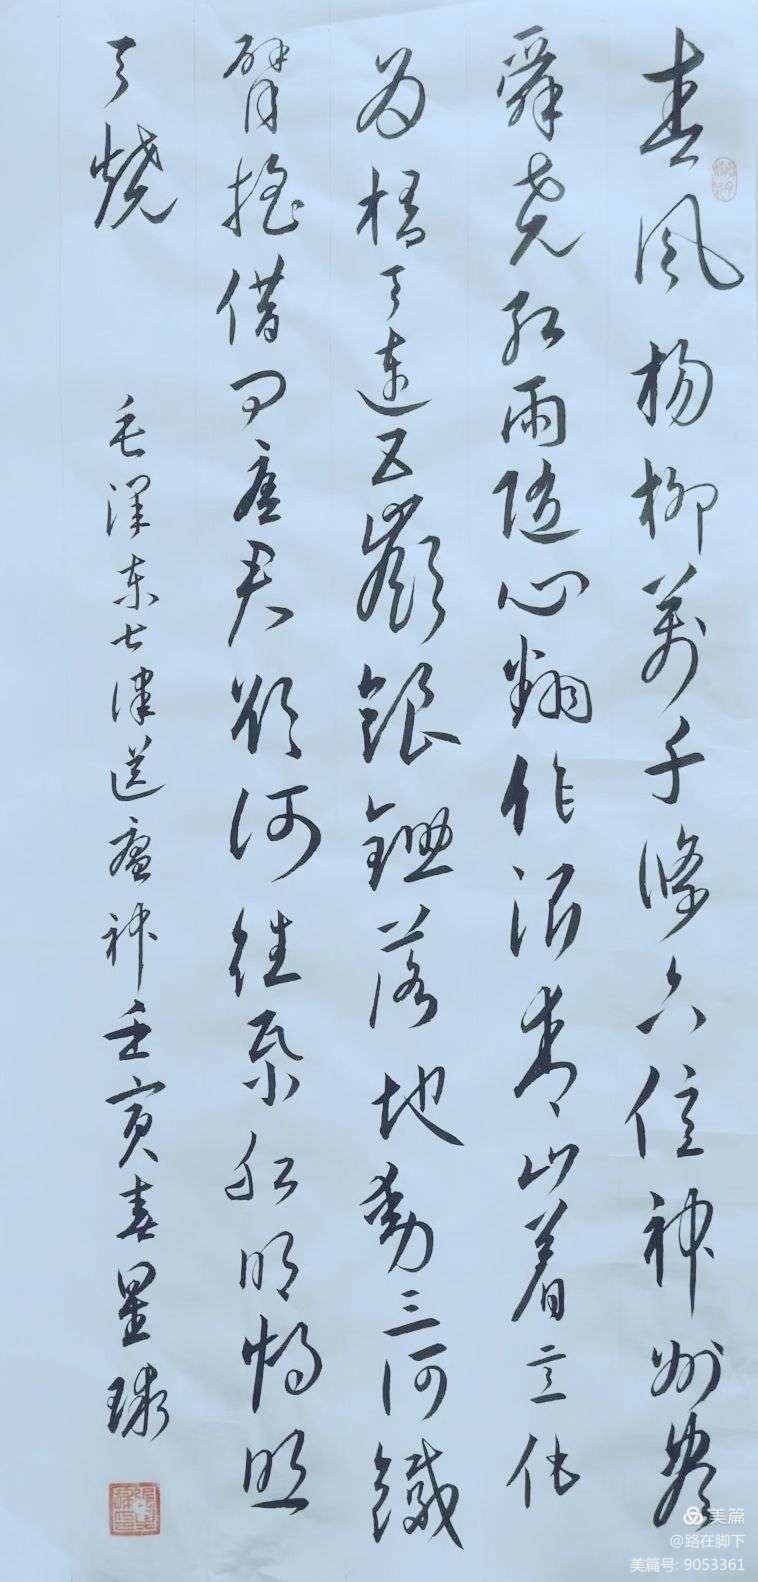 春风杨柳万千條六亿神州尽
舜尧红雨随心翻作浪青山着意化
为桥天连五岭銀鋤落地動三河鐵
臂摇借问瘟君欲何往紙船明烛照
天烧
毛泽东七律送瘟神壬寅春星球
美篇
@路在脚下
美篇号: 9053361